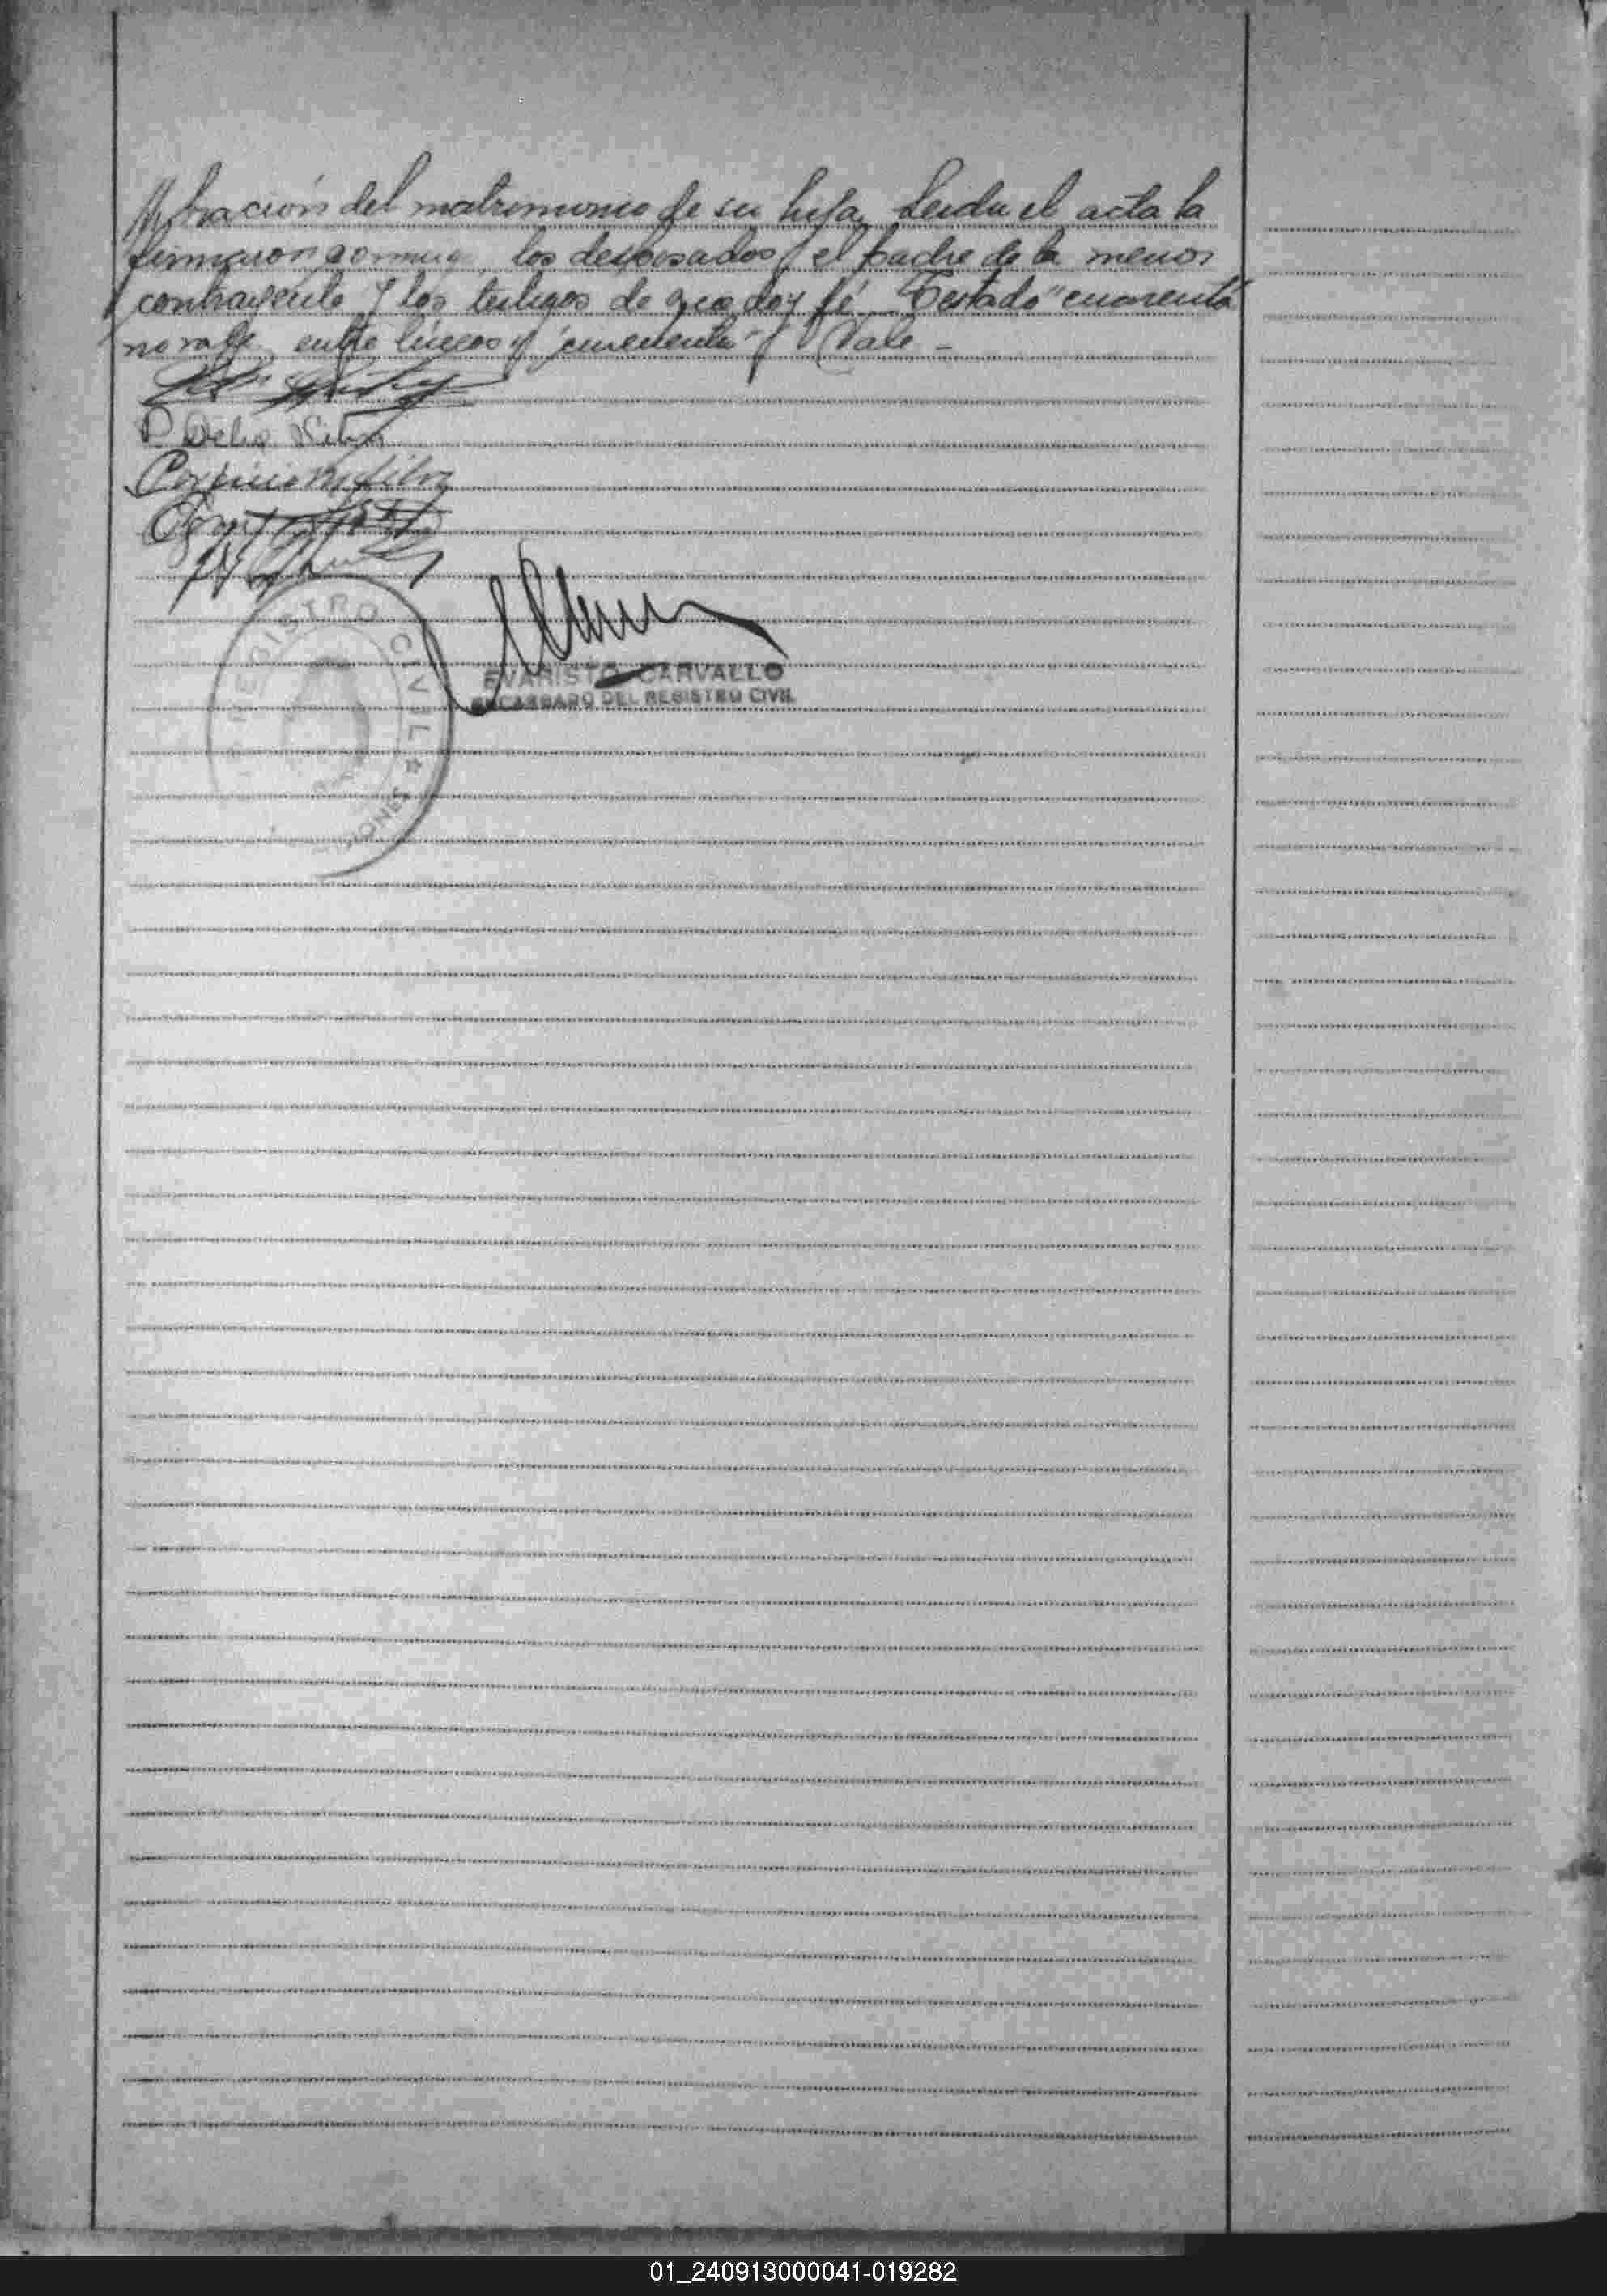 bración del matrimonio de su hija. Leida el acta la
firmaron conmigo, los desposados, el padre de la menor
contrayente y los testigos de que doy fé. Testado "cuarenta"
no vale, entre lineas y "cincuenta" Vale -
P. Delia Silva
REGISTRO CIVIL
IONES
EVARISTO CARVALLO
ENCARGADO DEL REGISTRO CIVIL
01_240913000041-019282